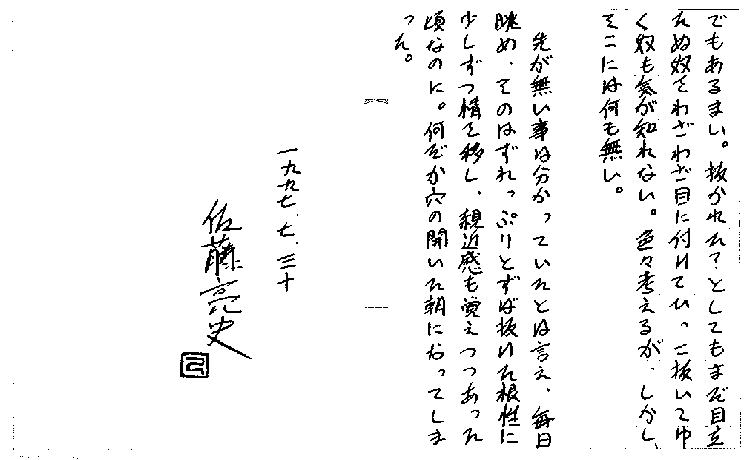 でもあるまい。抜かれた？としてもまだ目立
たぬ奴をわざわざ目に付けてひっこ抜いてゆ
く奴も気が知れない。色々考えるが、しかし、
そこには何も無い。
先が無い事は分かっていたとは言え、毎日
眺め、そのはずれっぷりとずば抜けた根性に
少しずつ情を移し、親近感も覚えつつあった
頃なのに。何だか穴の開いた朝になってしま
った。
一九九七、七、三十
佐藤亮史